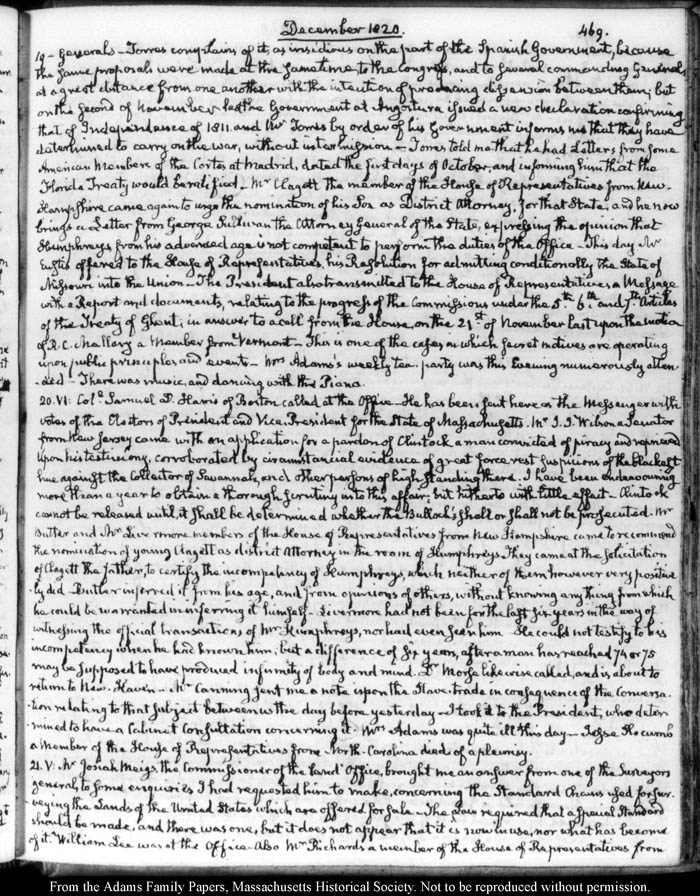 December 1820.
469.
19 - Generals - Torres complains of it, as insidious on the part of the Spanish Government, because
the same proposals were made at the same time to the Congress, and to several commanding Generals
at a great distance from one another with the intention of producing dissension between them; but
on the second of November last the Government at Angostura issued a new declaration confirming
that of Independence of 1811 and Mr Torres by order of his Government informs us that they have
determined to carry on the war, without intermission - Torres told me that he had Letters from some
American Members of the Cortes at Madrid, dated the first days of October, and informing him that the
Florida Treaty would be ratified - Mr Clagett the member of the House of Representatives from New-
Hampshire came again to urge the nomination of his Son as District Attorney, for that State; and he now
brings a Letter from George Sullivan the Attorney General of the State, expressing the opinion that
Humphreys from his advanced age is not competent to perform the duties of the Office - This day Mr
Eustis offered to the House of Representatives, his Resolution for admitting conditionally the State of
Missouri into the Union - The President also transmitted to the House of Representatives a Message
with a Report and documents, relating to the progress of the Commissions under the 5th 6th and 7th Articles
of the Treaty of Ghent; in answer to a call from the House, on the 21st of November last upon the motion
of R. C. Mallory a Member from Vermont - This is one of the cases in which secret motives are operating
upon public principles and events - Mrs Adams's weekly tea-party was this Evening numerously atten-
-ded - There was music, and dancing with the Piano.
20. VI. Coll. Samuel D. Harris of Boston called at the Office - He has been sent here as the Messenger with
votes of the Electors of President and Vice-President for the State of Massachusetts. Mr J. J. Wilson a Senator
from New Jersey came with an application for a pardon of Clintock a man convicted of piracy and reprieved
upon his testimony, corroborated by circumstancial evidence of great force rest suspicions of the blackest
hue against the Collector of Savannah, and other persons of high standing there. I have been endeavouring
more than a year to obtain a thorough scrutiny into this affair; but hitherto with little effect - Clintock
cannot be released until it shall be determined whether the Bullock's shall or shall not be prosecuted. Mr
Butler and Mr Livermore members of the House of Representatives from New Hampshire came to recommend
the nomination of young Clagett as district Attorney in the room of Humphreys. They came at the solicitation
of Clagett the father, to certify the incompetency of Humphreys, which neither of them however very positive-
-ly did - Butler inferred it from his age, and from opinions of others, without knowing any thing from which
he could be warranted in inferring it himself - Livermore had not been for the last six years in the way of
witnessing the official transactions of Mr Humphreys, nor had even seen him - He could not testify to his
incompetency when he had known him; but a difference of six years, after a man has reached 74 or 75
may be supposed to have produced infirmity of body and mind. Dr Morse likewise called, and is about to
return to New-Haven - Mr Canning sent me a note upon the Slave-trade in consequence of the Conversa-
-tion relating to that subject between us the day before yesterday - I took it to the President, who deter-
mined to have a Cabinet Consultation concerning it. Mrs Adams was quite ill this day - Jesse Slocumb
a Member of the House of Representatives from North-Carolina died of a pleurisy.
21. V. Mr Josiah Meigs, the Commissioner of the Land Office, brought me an answer from one of the Surveyors
general, to some enquiries I had requested him to make, concerning the Standard Chains used for sur-
veying the Lands of the United States which are offered for sale. The Law required that a special Standard
should be made, and there was one, but it does not appear that it is now in use, nor what has become
of it. William Lee was at the Office - Also Mr Richards a member of the House of Representatives from
From the Adams Family Papers, Massachusetts Historical Society. Not to be reproduced without permission.